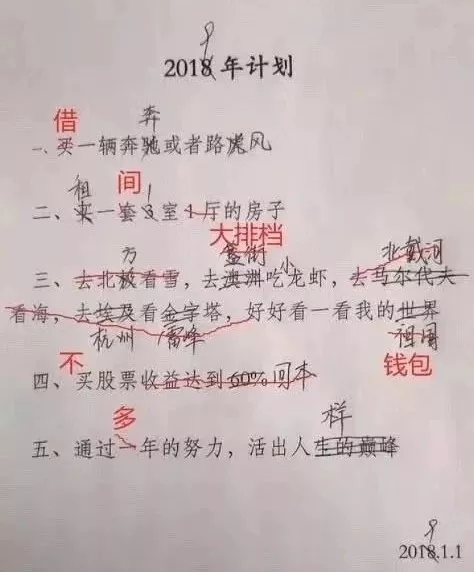 9
2018年计划
借 奔
一、买一辆奔驰或者路虎风
租 间 1
二、买一套3室1厅的房子
大排档
方 簋街 小 北戴河
三、去北极看雪，去澳洲吃龙虾，去马尔代夫
看海，去埃及看金字塔，好好看一看我的世界
杭州 雷峰 祖国
不 钱包
四、买股票收益达到60%回本
多 样
五、通过一年的努力，活出人生的巅峰
9
2018.1.1